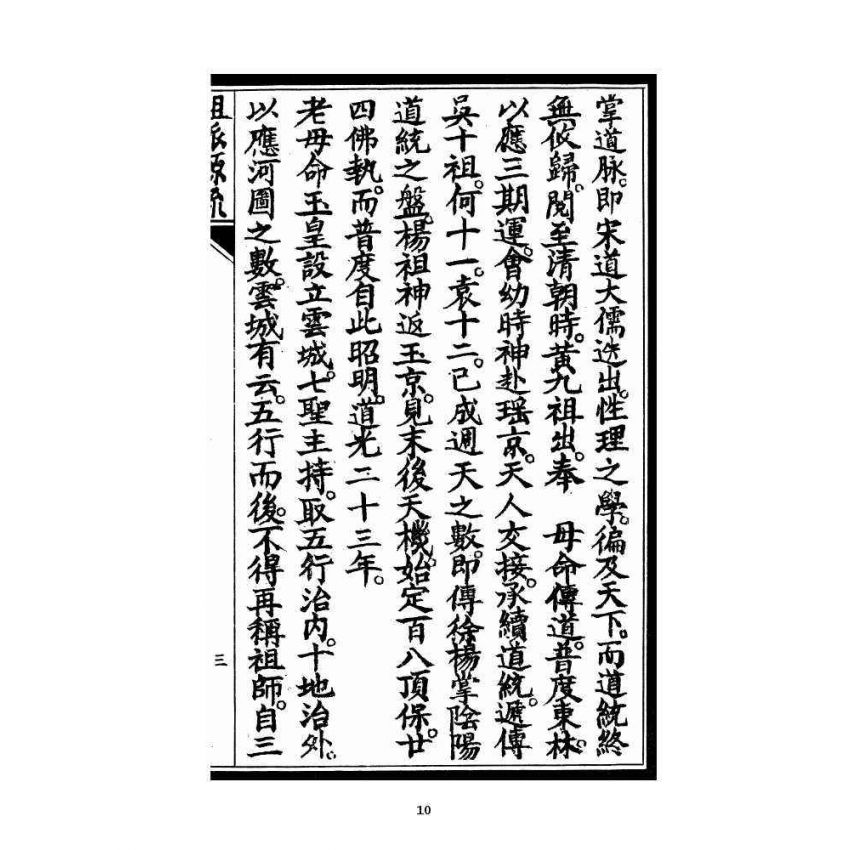 掌道脉。即宋道大儒迭出。性理之學。徧及天下。而道統終
無攸歸。閲至清朝時。黃九祖出。奉　母命傳道。普度東林。
以應三期運。會幼時神赴瑶京。天人交接。承續道統。遞傳
吳十祖。何十一。袁十二。已成週天之數。即傳徐楊掌陰陽
道統之盤。楊祖神返玉京。見末後天機。始定百八頂保。廿
四佛執。而普度自此昭明。道光二十三年。
老母命玉皇設立雲城。七聖主持。取五行治内。十地治外。
以應河圖之數。雲城有云。五行而後。不得再稱祖師。自三
祖派源流
三
10